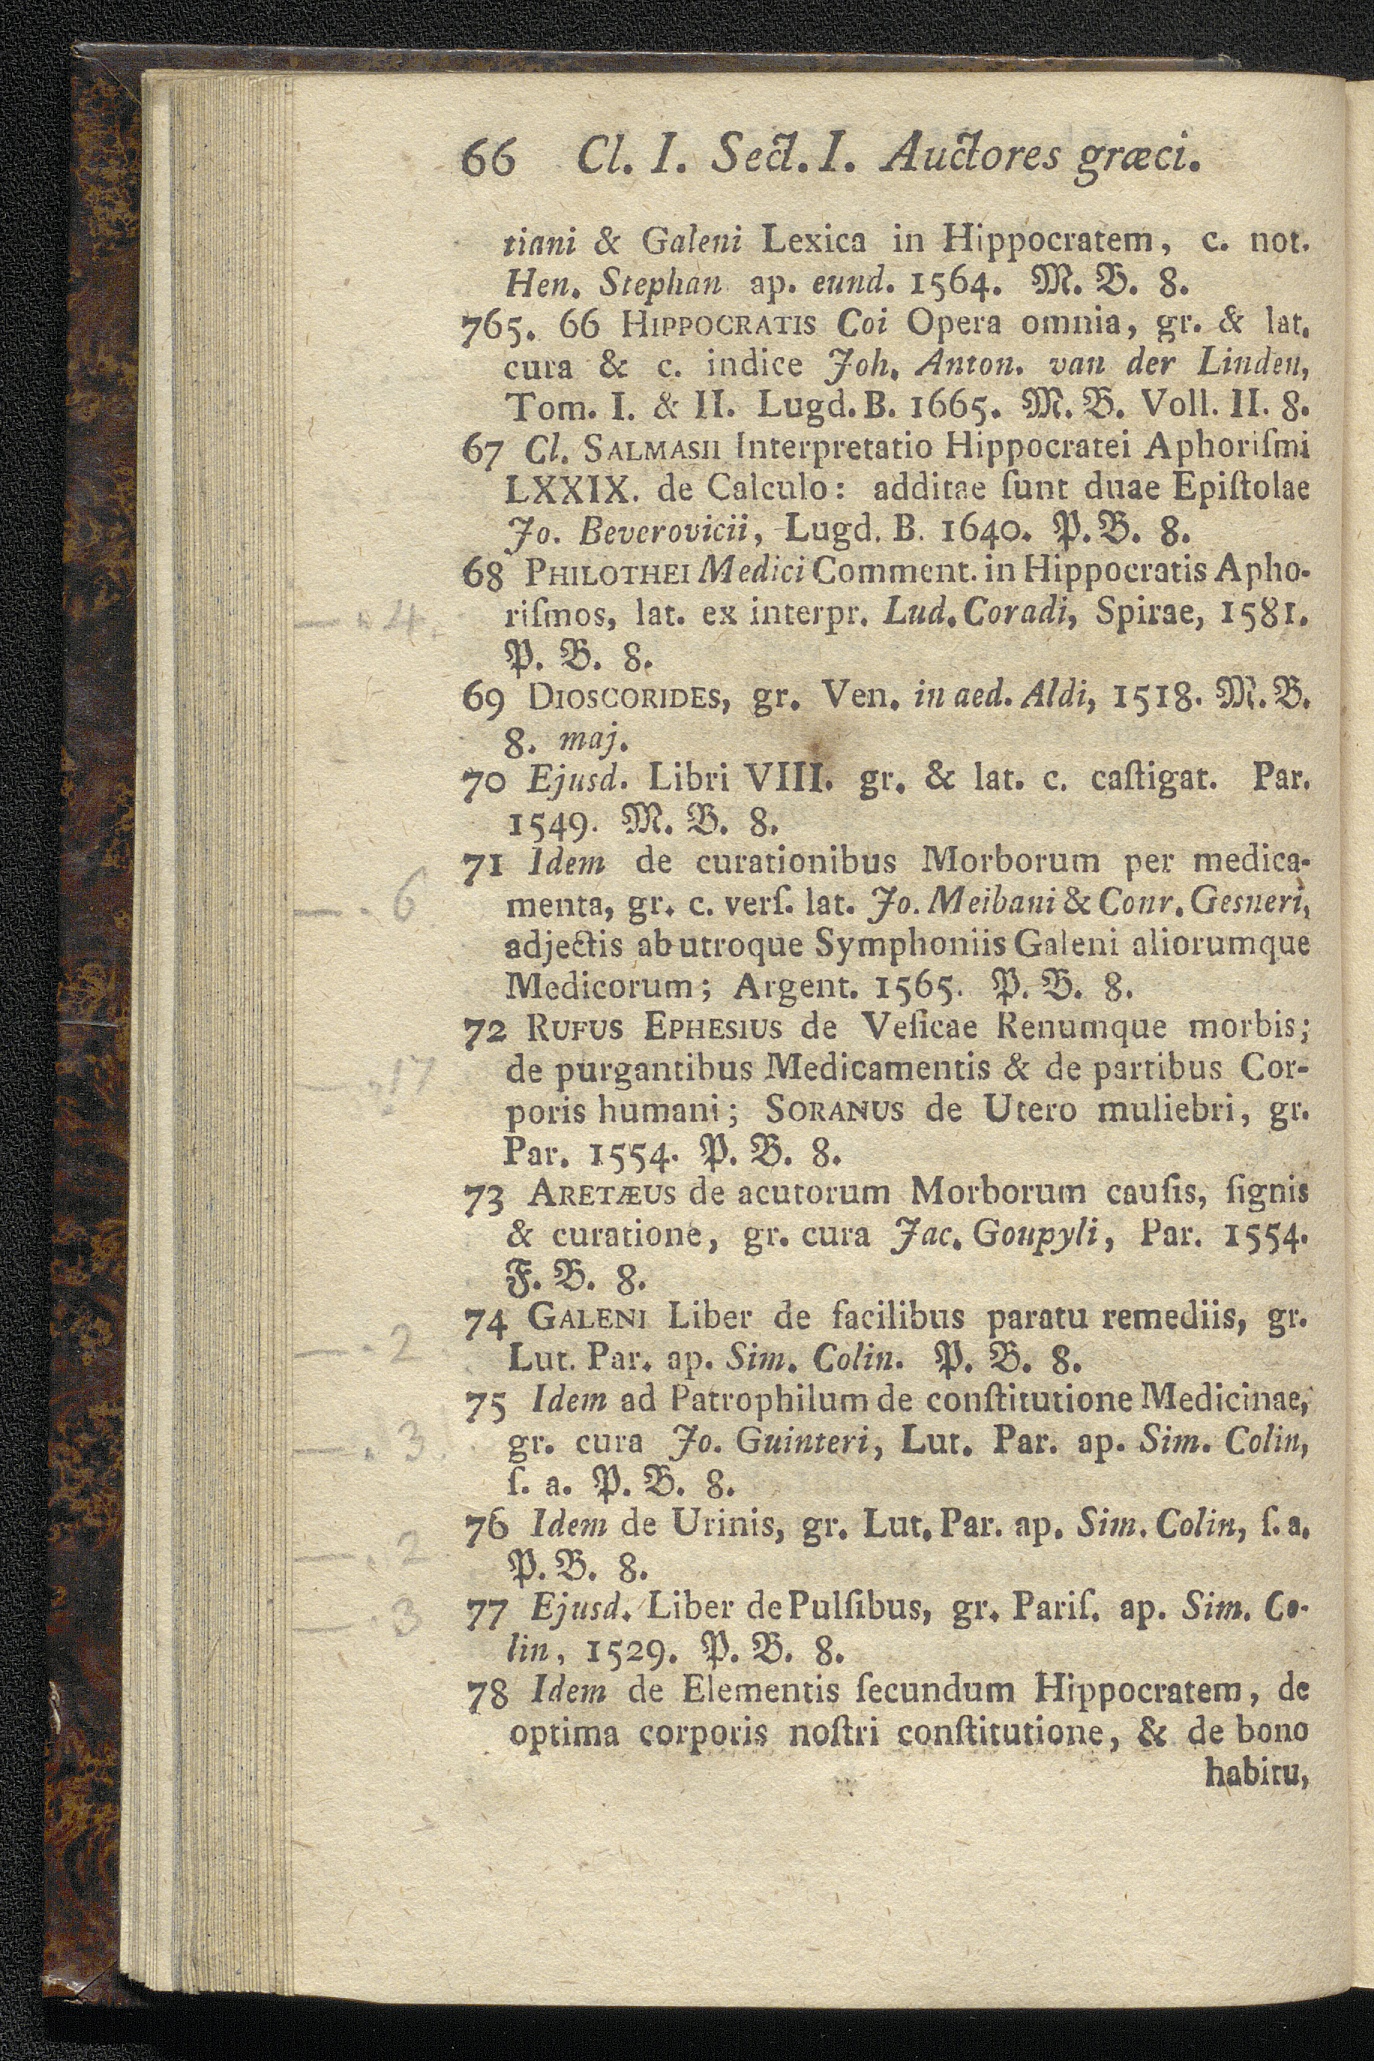 66 Cl. I. Sect. I. Auctores græci.
tiani & Galeni Lexica in Hippocratem, c. not.
Hen. Stephan ap. eund. 1564. M. B. 8.
765. 66 HIPPOCRATIS Coi Opera omnia, gr. & lat.
cura & c. indice Joh. Anton. van der Linden,
Tom. I. & II. Lugd. B. 1665. M. B. Voll. II. 8.
67 Cl. SALMASII Interpretatio Hippocratei Aphoriſmi
LXXIX. de Calculo: additae ſunt duae Epiſtolae
Jo. Beverovicii, Lugd. B. 1640. P. B. 8.
68 PHILOTHEI Medici Comment. in Hippocratis Apho-
— . 4.
riſmos, lat. ex interpr. Lud. Coradi, Spirae, 1581.
P. B. 8.
69 DIOSCORIDES, gr. Ven. in aed. Aldi, 1518. M. B.
8. maj.
70 Ejusd. Libri VIII. gr. & lat. c. caſtigat. Par.
1549. M. B. 8.
71 Idem de curationibus Morborum per medica-
— . 6
menta, gr. c. verſ. lat. Jo. Meibani & Conr. Gesneri,
adjectis ab utroque Symphoniis Galeni aliorumque
Medicorum; Argent. 1565. P. B. 8.
72 RUFUS EPHESIUS de Veſicae Renumque morbis;
— . 17
de purgantibus Medicamentis & de partibus Cor-
poris humani; SORANUS de Utero muliebri, gr.
Par. 1554. P. B. 8.
73 ARETÆUS de acutorum Morborum cauſis, ſignis
& curatione, gr. cura Jac. Goupyli, Par. 1554.
F. B. 8.
74 GALENI Liber de facilibus paratu remediis, gr.
— . 2
Lut. Par. ap. Sim. Colin. P. B. 8.
75 Idem ad Patrophilum de conſtitutione Medicinae,
— . 3.
gr. cura Jo. Guinteri, Lut. Par. ap. Sim. Colin,
ſ. a. P. B. 8.
76 Idem de Urinis, gr. Lut. Par. ap. Sim. Colin, ſ. a.
— . 2
P. B. 8.
77 Ejusd. Liber de Pulſibus, gr. Pariſ. ap. Sim. Co-
— . 3
lin, 1529. P. B. 8.
78 Idem de Elementis ſecundum Hippocratem, de
optima corporis noſtri conſtitutione, & de bono
habitu,